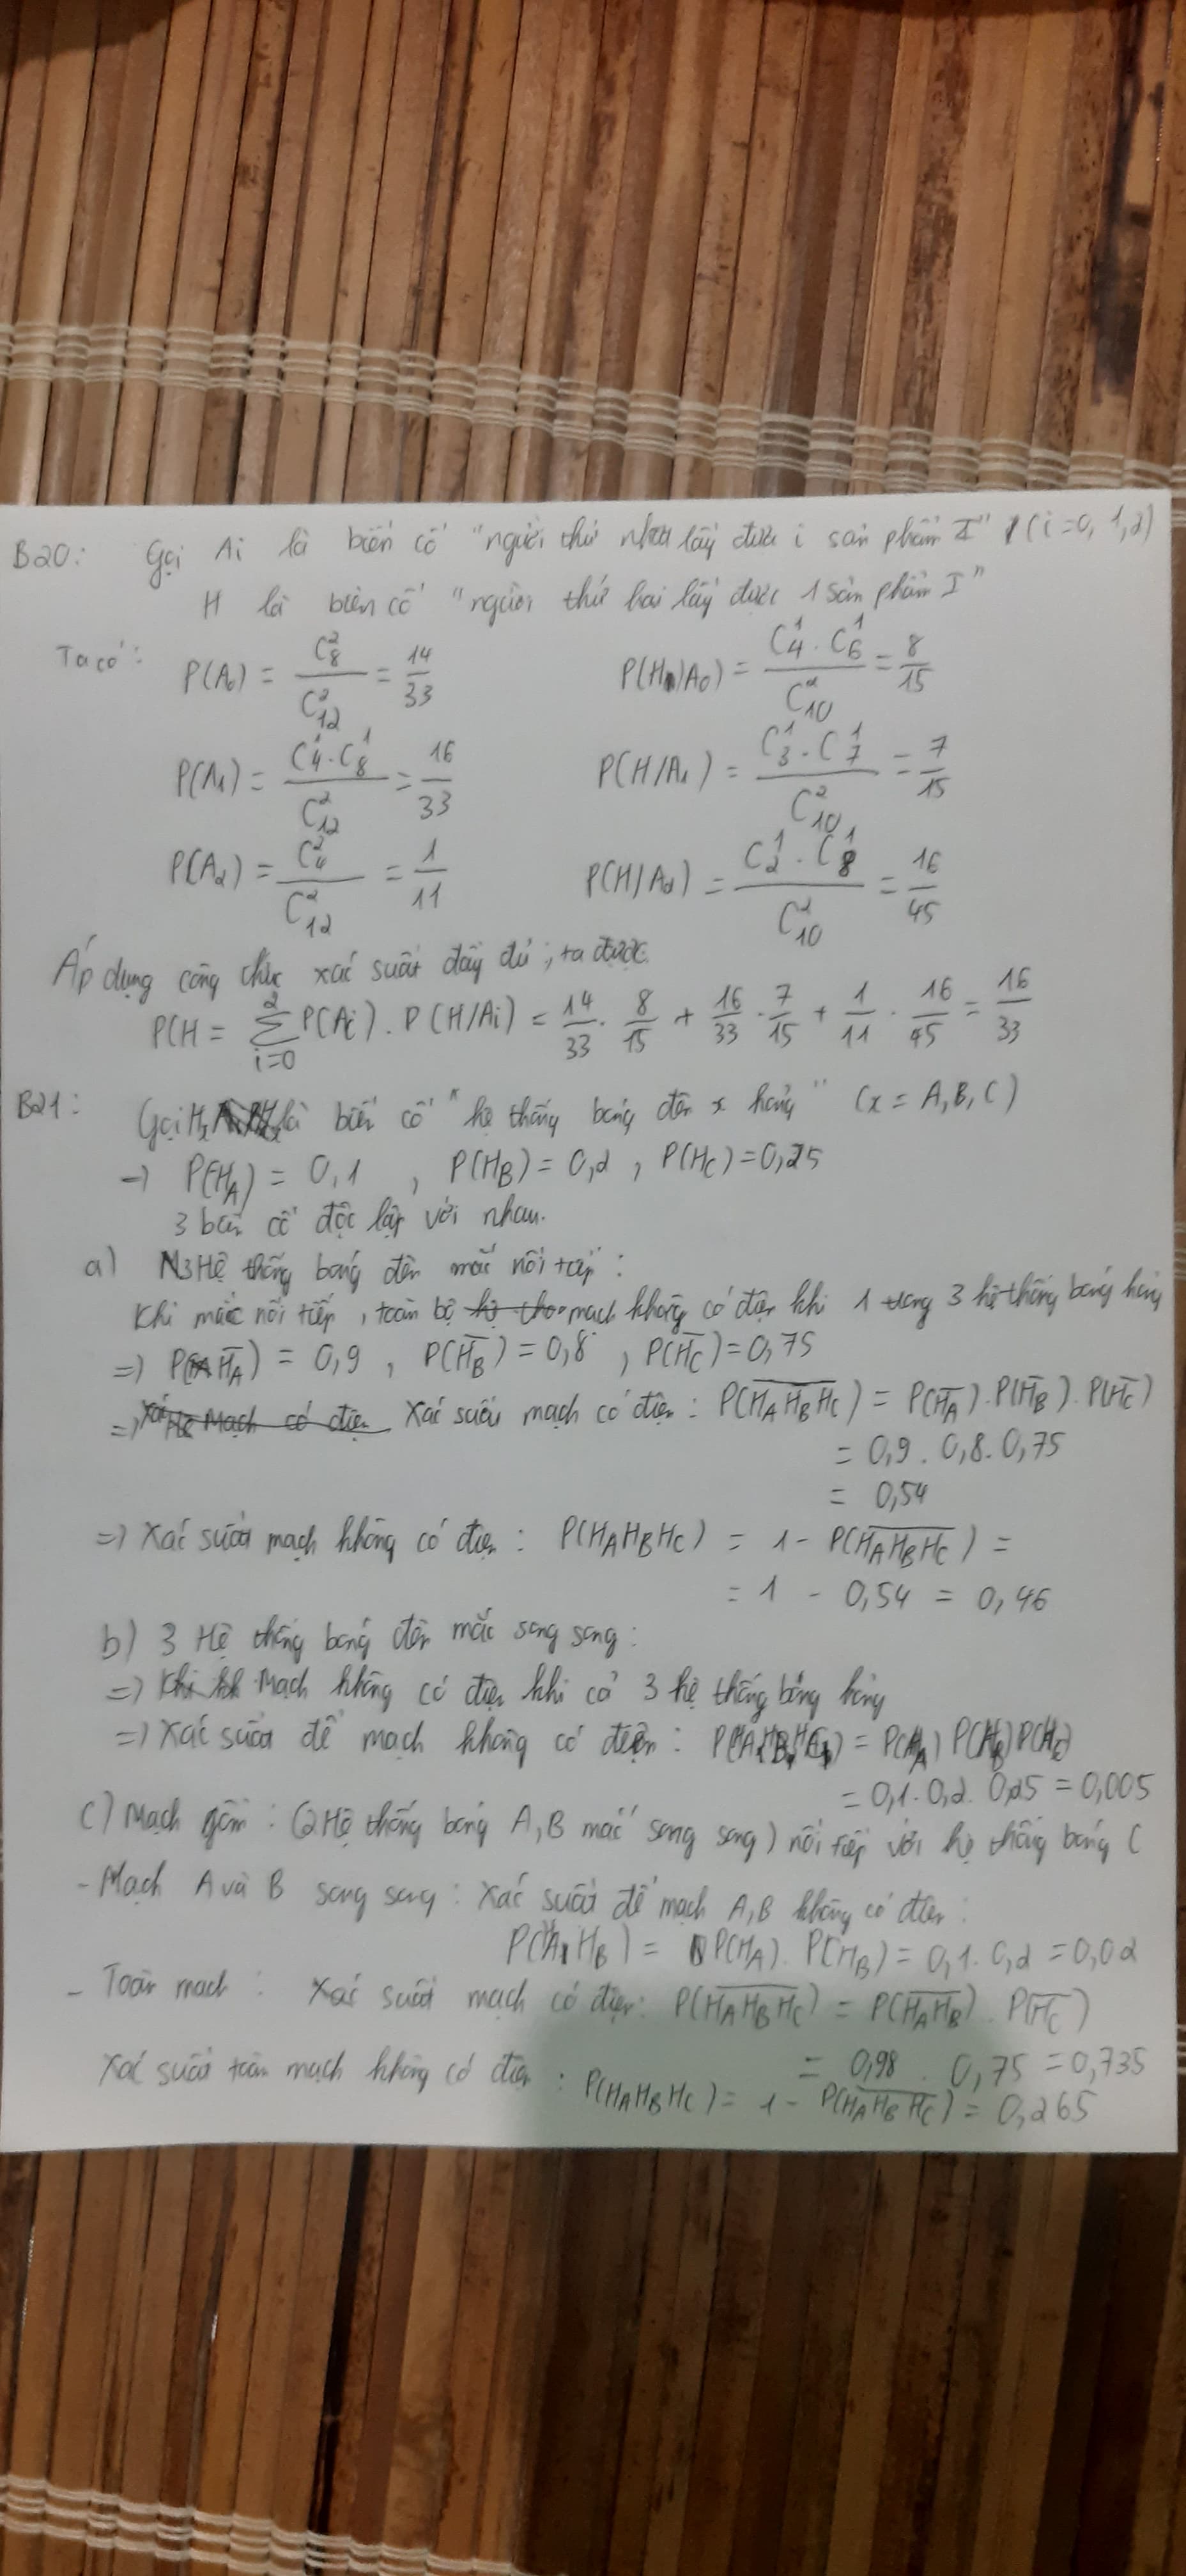 B20: Gọi Ai là biến cố "người thứ nhất lấy được i sản phẩm I" (i=0, 1, 2)
H là biến cố "người thứ hai lấy được 1 sản phẩm I"
Ta có: P(A₀) = C²₈ / C²₁₂ = 14/33 P(H/A₀) = C¹₄ . C¹₆ / C²₁₀ = 8/15
P(A₁) = C¹₄ . C¹₈ / C²₁₂ = 16/33 P(H/A₁) = C¹₃ . C¹₇ / C²₁₀ = 7/15
P(A₂) = C²₄ / C²₁₂ = 1/11 P(H/A₂) = C¹₂ . C¹₈ / C²₁₀ = 16/45
Áp dụng công thức xác suất đầy đủ, ta được
P(H = ∑²ᵢ₌₀ P(Ai) . P(H/Ai) = 14/33 . 8/15 + 16/33 . 7/15 + 1/11 . 16/45 = 16/33
B21: Gọi Hₓ là biến cố "hệ thống bóng đèn x hỏng" (x = A, B, C)
→ P(H_A) = 0,1 , P(H_B) = 0,2 , P(H_C) = 0,25
3 biến cố độc lập với nhau.
a) 3 Hệ thống bóng đèn mắc nối tiếp:
Khi mắc nối tiếp, toàn bộ mạch không có điện khi 1 trong 3 hệ thống bóng hỏng
=> P(H̅_A) = 0,9 , P(H̅_B) = 0,8 , P(H̅_C) = 0,75
=> Xác suất mạch có điện: P(H̅_A H̅_B H̅_C) = P(H̅_A) . P(H̅_B) . P(H̅_C)
= 0,9 . 0,8 . 0,75
= 0,54
=> Xác suất mạch không có điện: P(H_A H_B H_C) = 1 - P(H̅_A H̅_B H̅_C) =
= 1 - 0,54 = 0,46
b) 3 Hệ thống bóng đèn mắc song song:
=> Mạch không có điện khi cả 3 hệ thống bóng hỏng
=> Xác suất để mạch không có điện: P(H_A H_B H_C) = P(H_A) P(H_B) P(H_C)
= 0,1 . 0,2 . 0,25 = 0,005
c) Mạch gồm: (2 Hệ thống bóng A, B mắc song song) nối tiếp với hệ thống bóng C
- Mạch A và B song song: Xác suất để mạch A, B không có điện:
P(H_A H_B) = P(H_A) . P(H_B) = 0,1 . 0,2 = 0,02
- Toàn mạch: Xác suất mạch có điện: P(H̅_A H̅_B H̅_C) = P(H̅_A H̅_B) . P(H̅_C)
= 0,98 . 0,75 = 0,735
Xác suất toàn mạch không có điện: P(H_A H_B H_C) = 1 - P(H̅_A H̅_B H̅_C) = 0,265